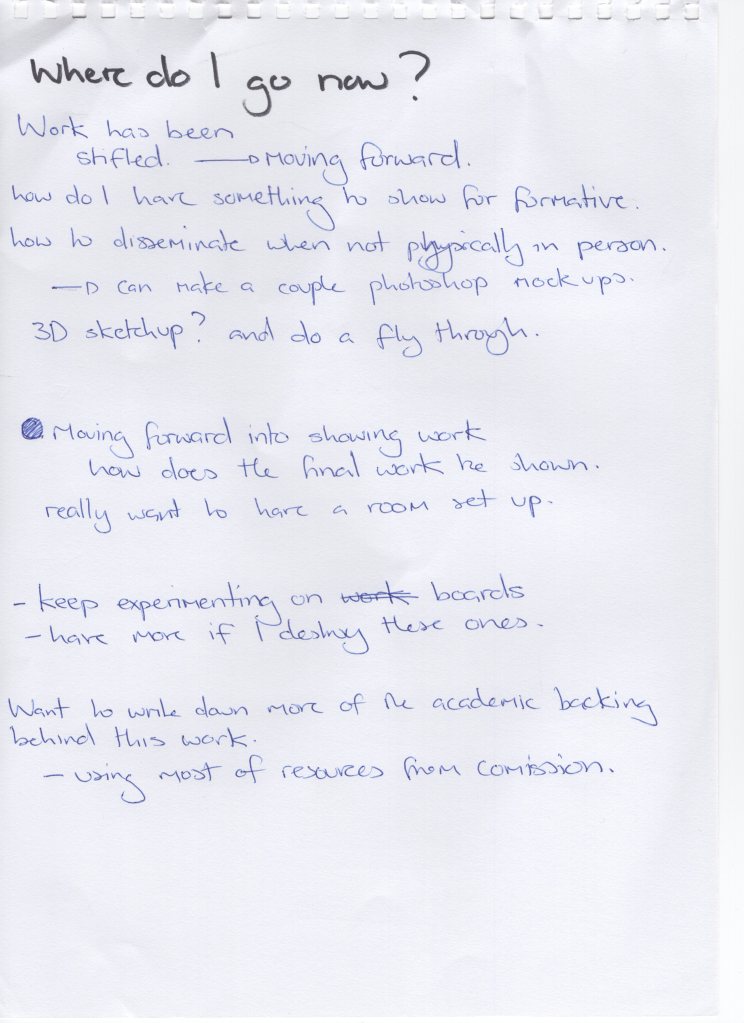 Where do I go now?
Work has been
stifled. → Moving forward.
how do I have something to show for formative.
how to disseminate when not physically in person.
→ can make a couple photoshop mockups.
3D sketchup? and do a fly through.
● Moving forward into showing work
how does the final work be shown.
really want to have a room set up.
- keep experimenting on ~~work~~ boards
- have more if I destroy these ones.
Want to write down more of the academic backing
behind this work.
- using most of resources from comission.